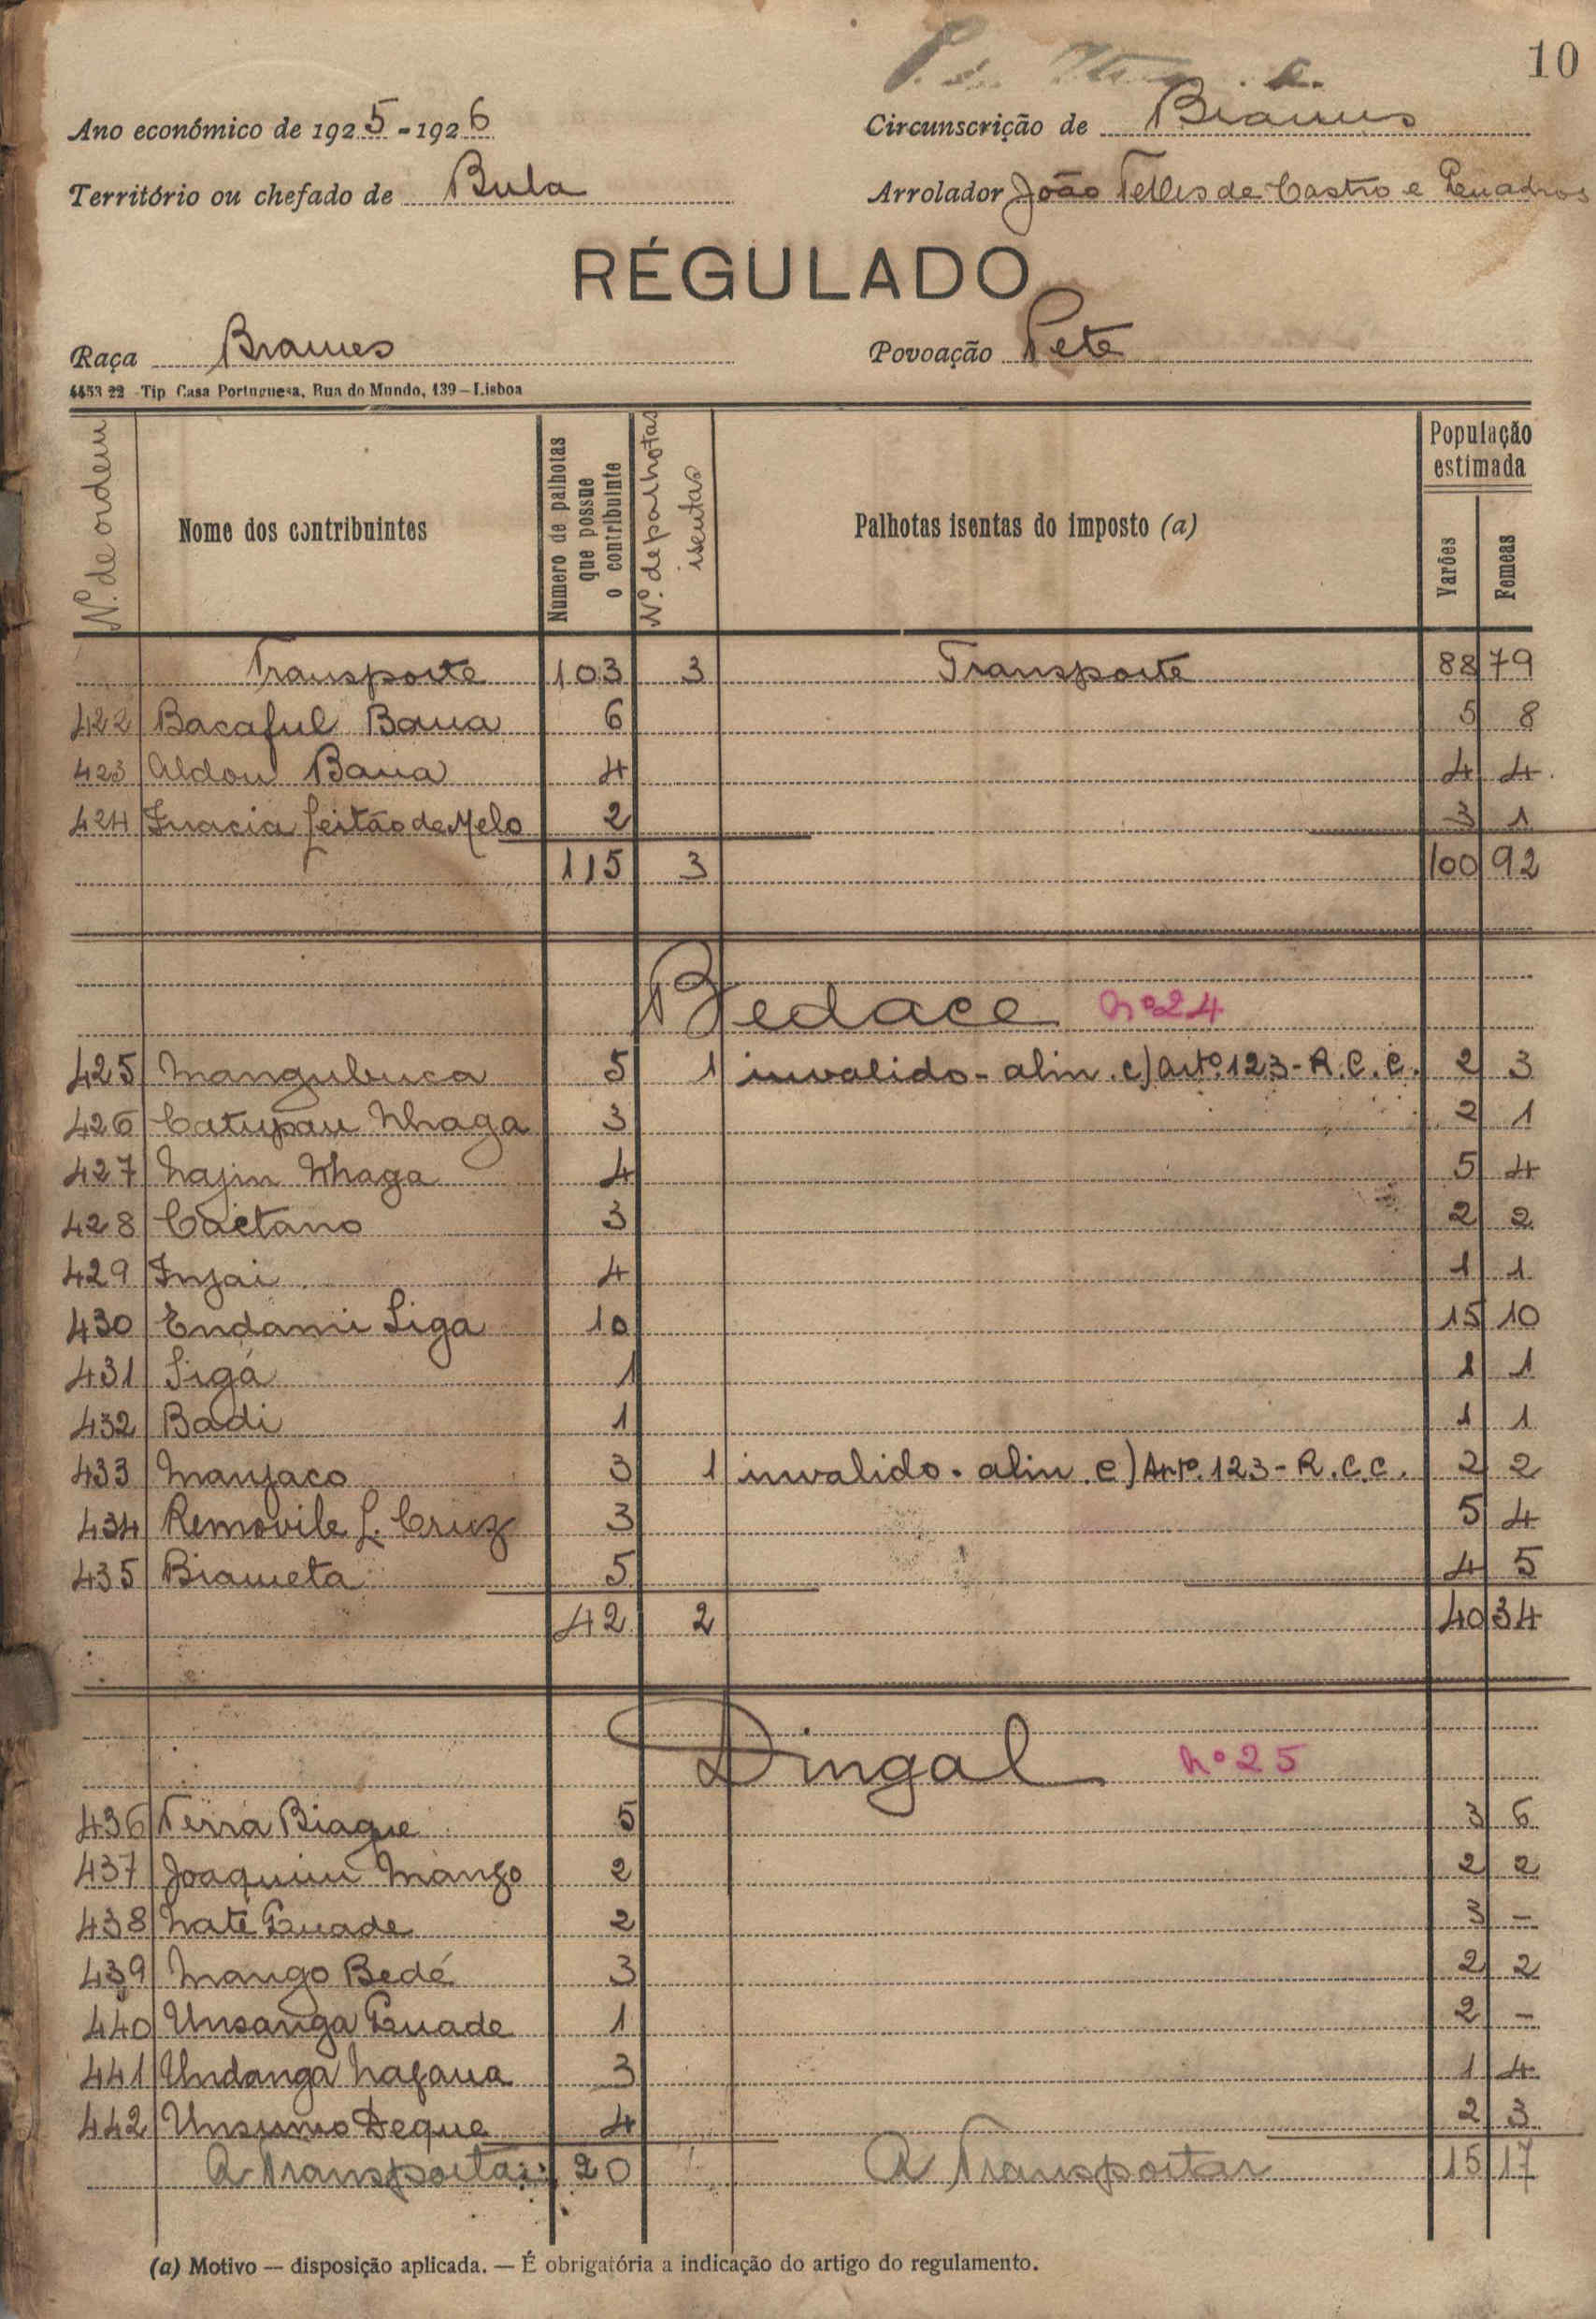 10
Ano económico de 1925-1926 Circunscrição de Brames
Território ou chefado de Bula Arrolador João Telles de Castro e
RÉGULADO
Raça Brames Povoação Pete
4453 22 - Tip Casa Portuguesa, Rua do Mundo, 139 – Lisboa
Nº. de ordem Nome dos contribuintes Numero de palhotas que possue o contribuinte Nº. de palhotas isentas Palhotas isentas do imposto (a) População estimada Varões Femeas
Transporte 103 3 Transporte 88 79
422 Bacaful Baua 6 5 8
423 Aldou Baua 4 4 4
424 Inacia Leitão de Melo 2 3 1
115 3 100 92
Bedace nº 24
425 Mangubuca 5 1 invalido - alin. c) Artº. 123 - R.C.C. 2 3
426 Catupau Nhaga 3 2 1
427 Najin Nhaga 4 5 4
428 Caetano 3 2 2
429 Injai 4 1 1
430 Endami Siga 10 15 10
431 Sigá 1 1 1
432 Badi 1 1 1
433 Manjaco 3 1 invalido - alin c) Artº. 123 - R.C.C. 2 2
434 Removile L. Cruz 3 5 4
435 Biameta 5 4 5
42 2 40 34
Dingal nº 25
436 Terra Biague 5 3 6
437 Joaquim Mango 2 2 2
438 Naté Quade 2 3 -
439 Mango Bedé 3 2 2
440 Unsanga Quade 1 2 -
441 Undanga Nafaua 3 1 4
442 Unsumo Deque 4 2 3
A Transportar 20 A Transportar 15 17
(a) Motivo — disposição aplicada. — É obrigatória a indicação do artigo do regulamento.